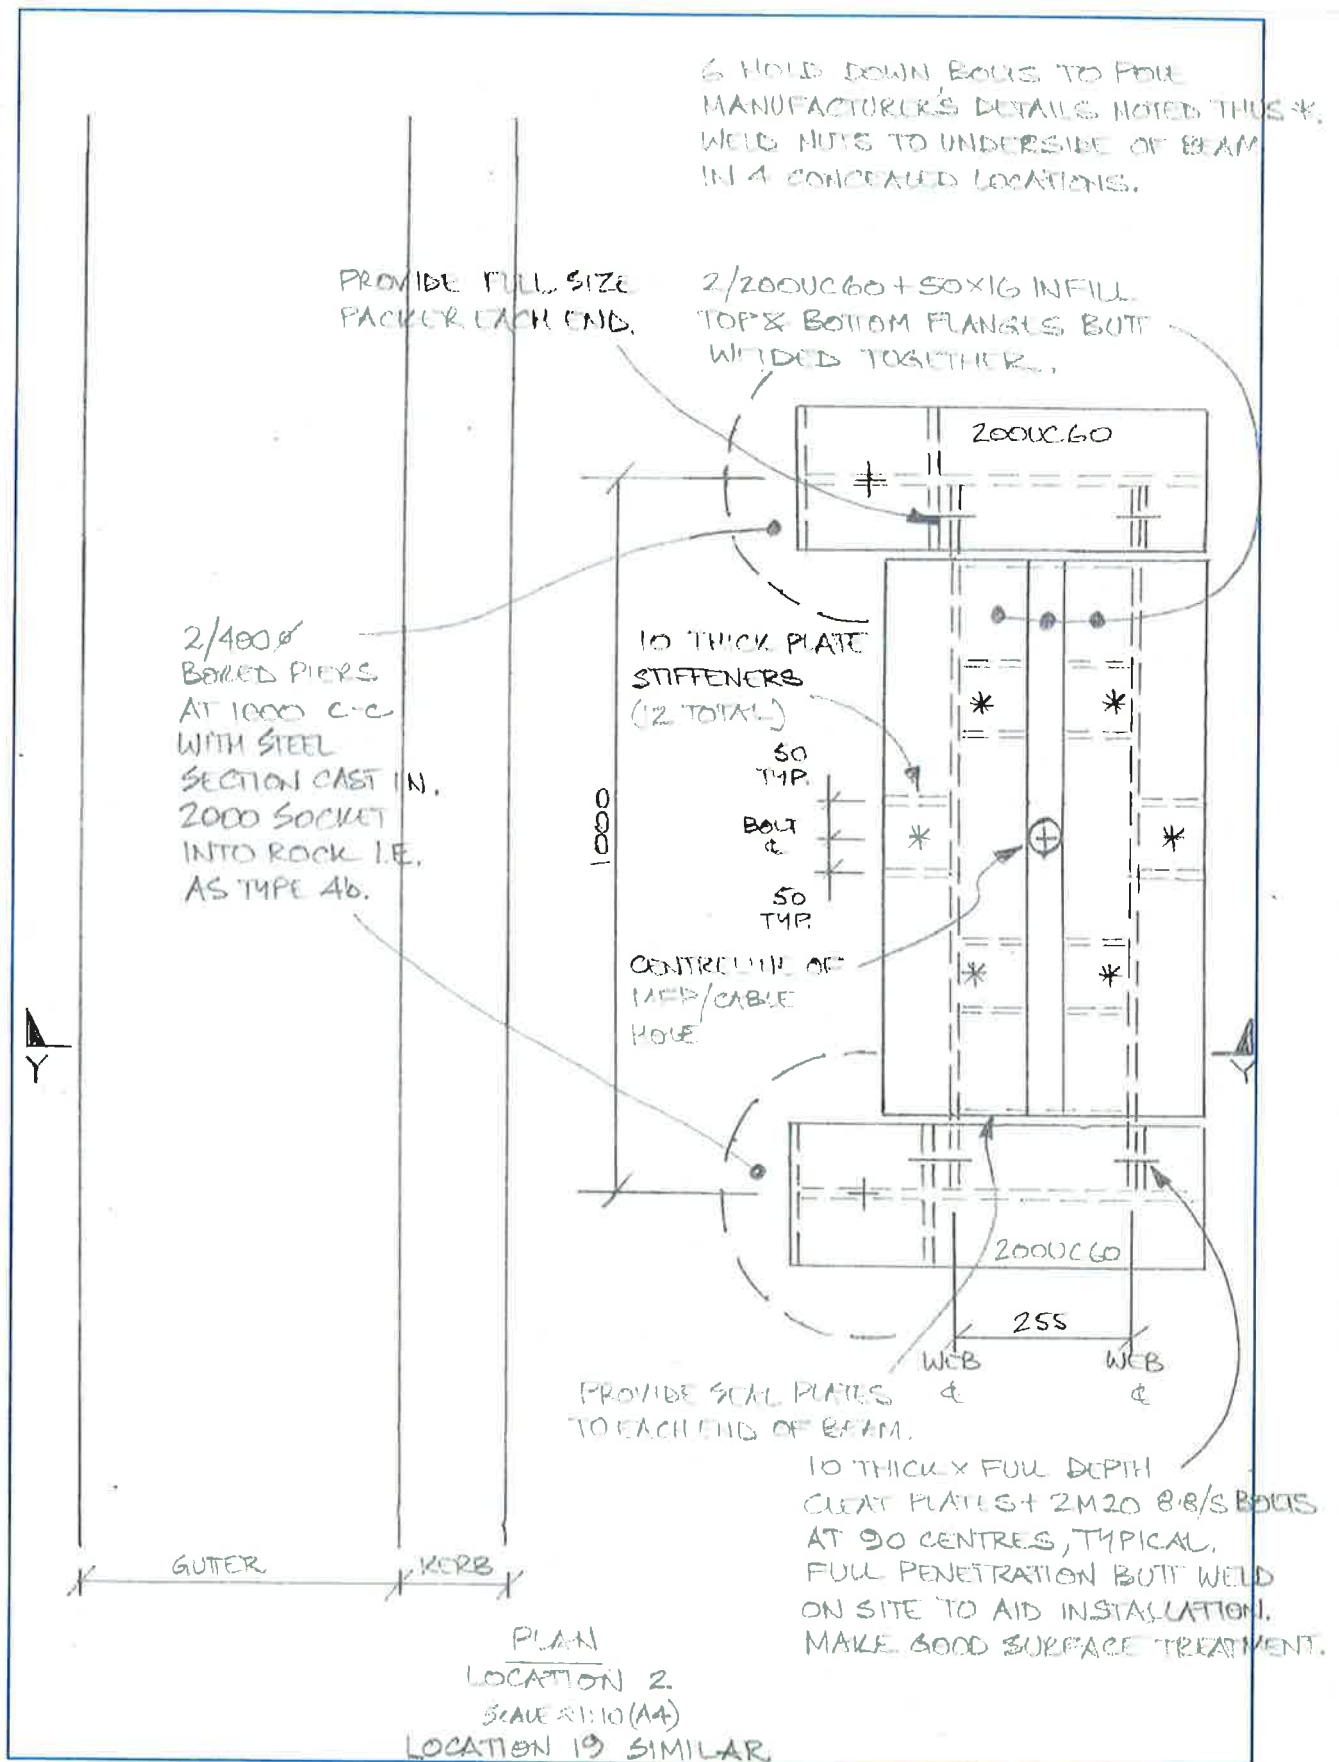 6 HOLD DOWN BOLTS TO POLE
MANUFACTURER'S DETAILS NOTED THUS *.
WELD NUTS TO UNDERSIDE OF BEAM
IN 4 CONCEALED LOCATIONS.
PROVIDE FULL SIZE
PACKER EACH END.
2/200UC60 + 50X16 INFILL
TOP & BOTTOM FLANGES BUTT
WELDED TOGETHER.
200UC60
2/400Ø
BORED PIERS
AT 1000 C-C
WITH STEEL
SECTION CAST IN.
2000 SOCKET
INTO ROCK I.E.
AS TYPE 4b.
10 THICK PLATE
STIFFENERS
(12 TOTAL)
50
TYP.
BOLT
℄
50
TYP.
1000
CENTRELINE OF
MFP/CABLE
HOLE
Y
Y
200UC60
255
WEB
℄
WEB
℄
PROVIDE SEAL PLATES
TO EACH END OF BEAM.
10 THICK X FULL DEPTH
CLEAT PLATES + 2M20 8.8/S BOLTS
AT 90 CENTRES, TYPICAL.
FULL PENETRATION BUTT WELD
ON SITE TO AID INSTALLATION.
MAKE GOOD SURFACE TREATMENT.
GUTTER
KERB
PLAN
LOCATION 2.
SCALE 1:10 (A4)
LOCATION 19 SIMILAR